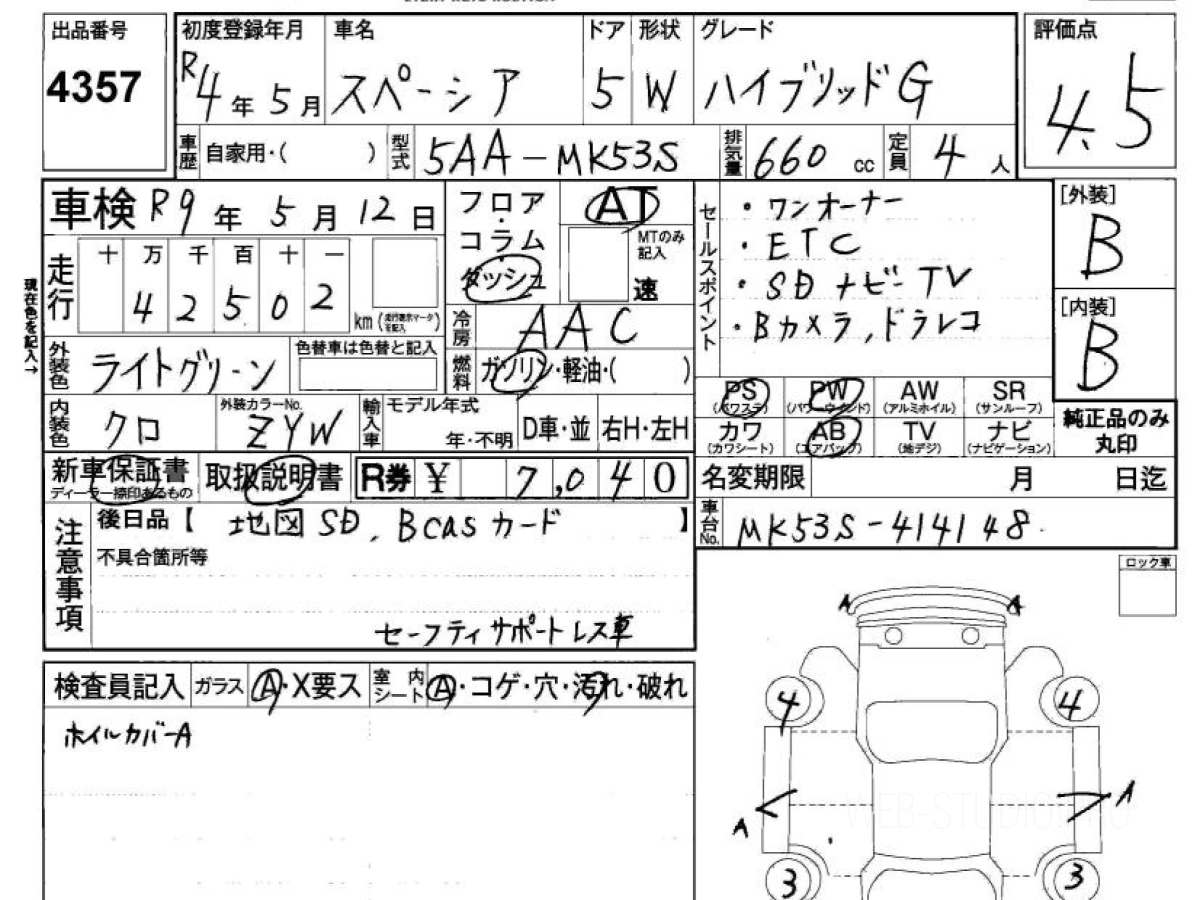 出品番号 初度登録年月 車名 ドア 形状 グレード 評価点
4357 R4年5月 スペーシア 5 W ハイブリッドG 4.5
車歴 自家用・( ) 型式 5AA-MK53S 排気量 660 cc 定員 4人
車検 R9年5月12日 フロア・コラム AT セールスポイント ・ワンオーナー [外装]
走行 十 万 千 百 十 一 ダッシュ MTのみ記入 速 ・ETC B
4 2 5 0 2 km ・SDナビーTV [内装]
現在色を記入→ 冷房 AAC ・Bカメラ,ドラレコ B
外装色 ライトグリーン 色替車は色替と記入 燃料 ガソリン・軽油・( )
PS (パワステ) PW (パワーウインド) AW (アルミホイル) SR (サンルーフ) 純正品のみ丸印
内装色 クロ 外装カラーNo. ZYW 輸入車 モデル年式 年・不明 D車・並 右H・左H
カワ (カワシート) AB (エアバッグ) TV (地デジ) ナビ (ナビゲーション)
新車保証書 ディーラー捺印あるもの 取扱説明書 R券 ¥ 7,040 名変期限 月 日迄
注意事項 後日品【 地図SD, Bcasカード 】 車台No. MK53S-414148
不具合箇所等 ロック車
セーフティサポートレス車
検査員記入 ガラス A・X要ス 室内シート A・コゲ・穴・汚れ・破れ
ホイルカバーA
A A
4 4
A A
WEB-STUDIO
3 3